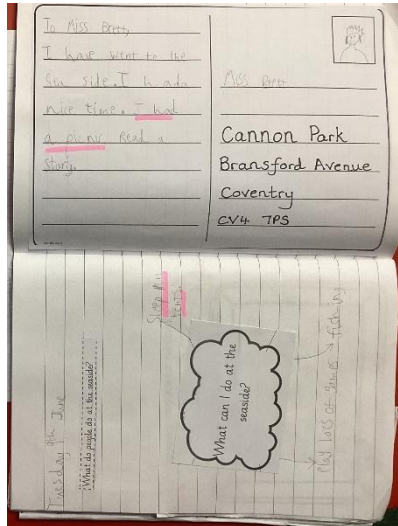 To Miss Brett
I have went to the
Sea side. I had a
nice time. I had
a picnic Read a
Story.
Miss Brett
Cannon Park
Bransford Avenue
Coventry
CV4 7PS
Tuesday 9th June
What do people do at the seaside?
What can I do at the
seaside?
Sleep in
tents.
fishing
Play lots of games